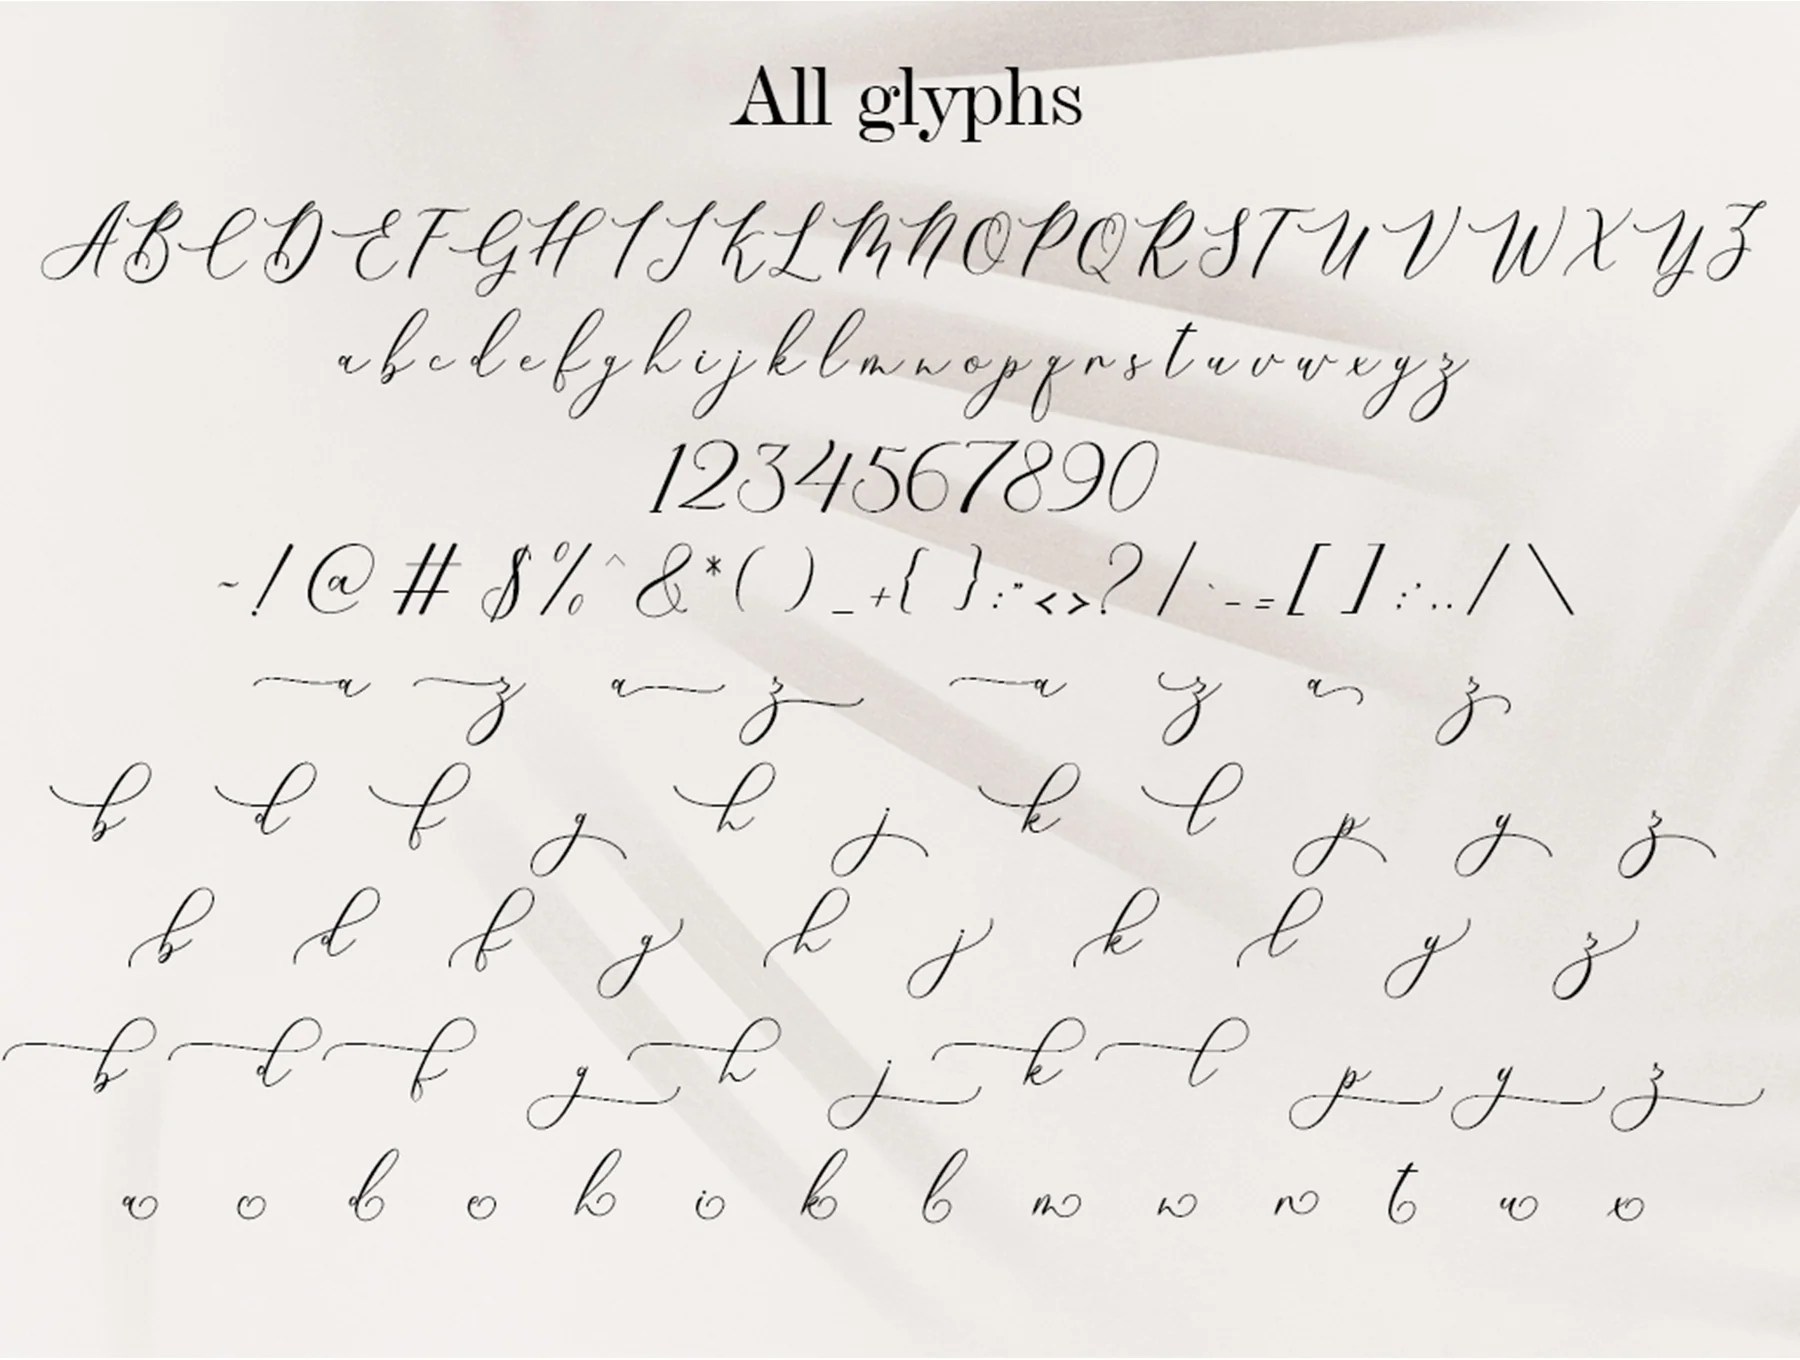 All glyphs
ABCDEFGHIJKLMNOPQRSTUVWXYZ
abcdefghijklmnopqrstuvwxyz
1234567890
~!@#$%^&*()_+{}:"<>?/`-=[];'..​/\
a z a z a z a z
b d f g h j k l p y z
b d f g h j k l y z
b d f g h j k l p y z
a c d e h i k l m n r t u x